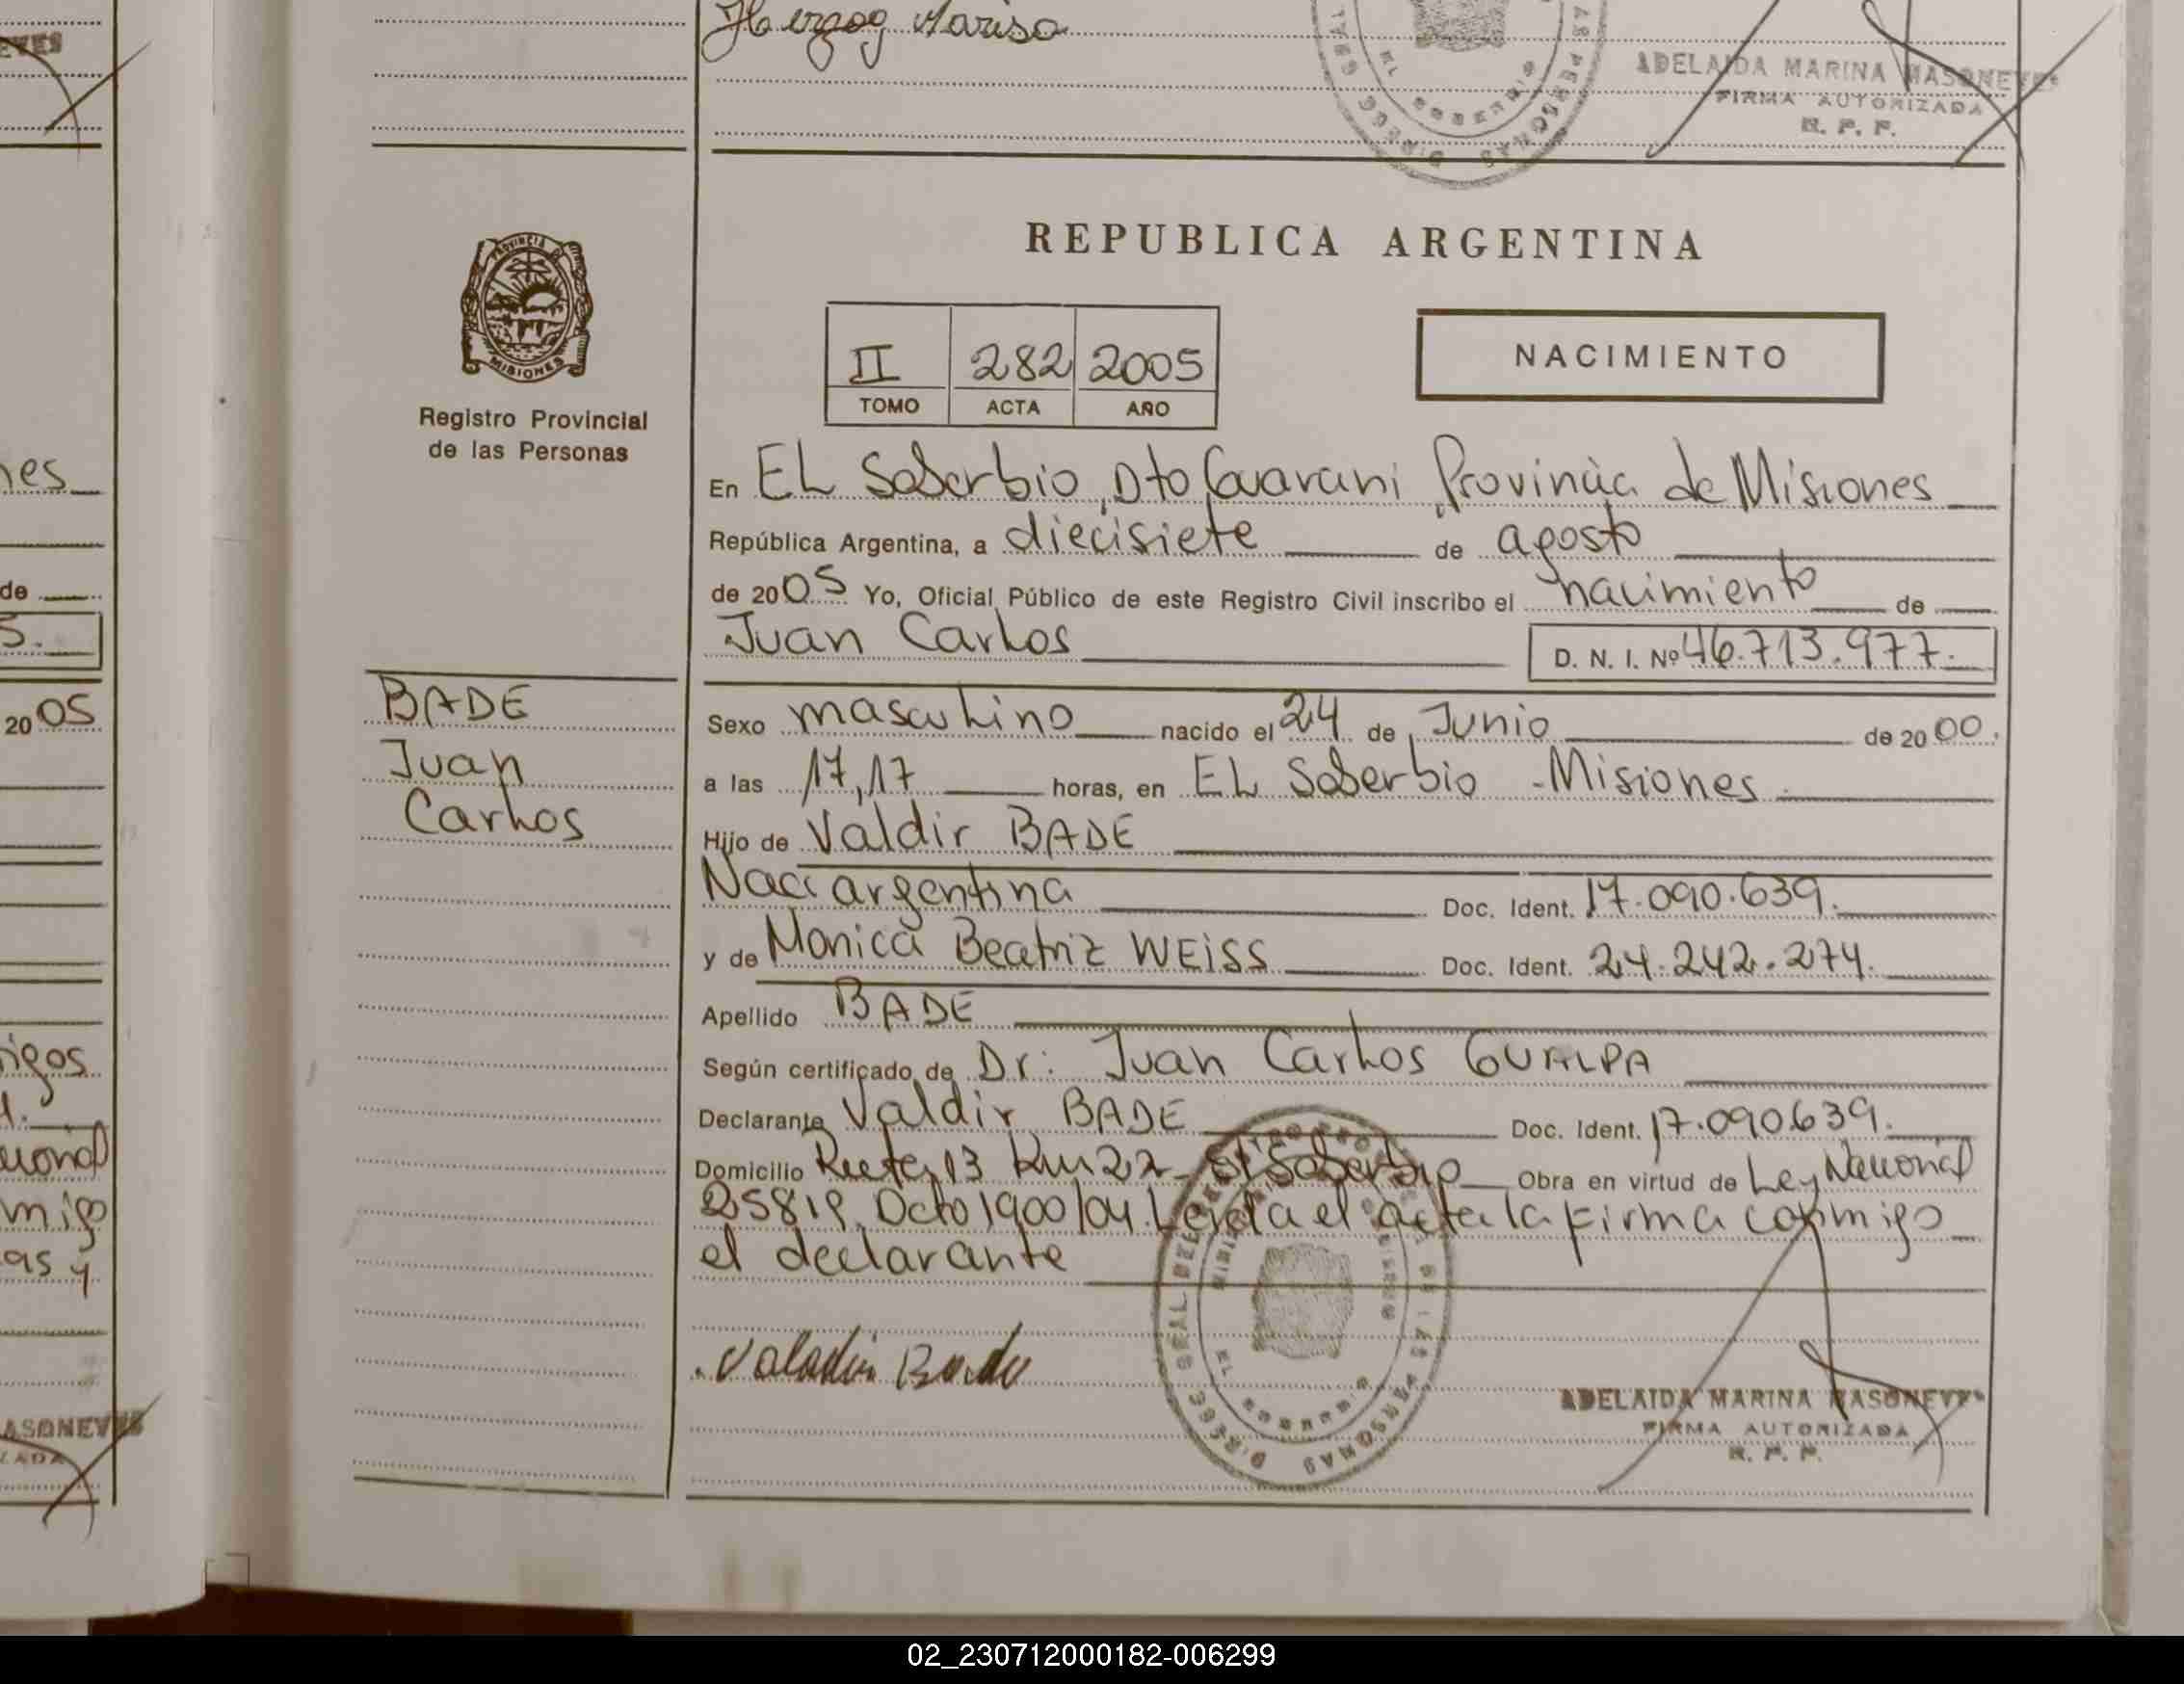 Herzog Marisa
ADELAIDA MARINA MASONEVES
FIRMA AUTORIZADA
R. P. P.
REPUBLICA ARGENTINA
PROVINCIA
MISIONES
Registro Provincial
de las Personas
II 282 2005
TOMO ACTA AÑO
NACIMIENTO
En EL Soberbio, Dto Guarani Provincia de Misiones
República Argentina, a diecisiete de agosto
de 2005 Yo, Oficial Público de este Registro Civil inscribo el nacimiento de
Juan Carlos D. N. I. Nº 46.713.977.
BADE
Juan
Carlos
Sexo masculino nacido el 24 de Junio de 2000.
a las 17,17 horas, en EL Soberbio - Misiones
Hijo de Valdir BADE
Nac: argentina Doc. Ident. 17.090.639.
y de Monica Beatriz WEISS Doc. Ident. 24.242.274.
Apellido BADE
Según certificado de Dr: Juan Carlos GUALPA
Declarante Valdir BADE Doc. Ident. 17.090.639.
Domicilio Ruta 13 Km 27 - El Soberbio Obra en virtud de Ley Nacional
25819. Dcto 1900/04. Leida el acta la firma conmigo
el declarante
Valdir Bade
ADELAIDA MARINA MASONEVES
FIRMA AUTORIZADA
R. P. P.
02_230712000182-006299